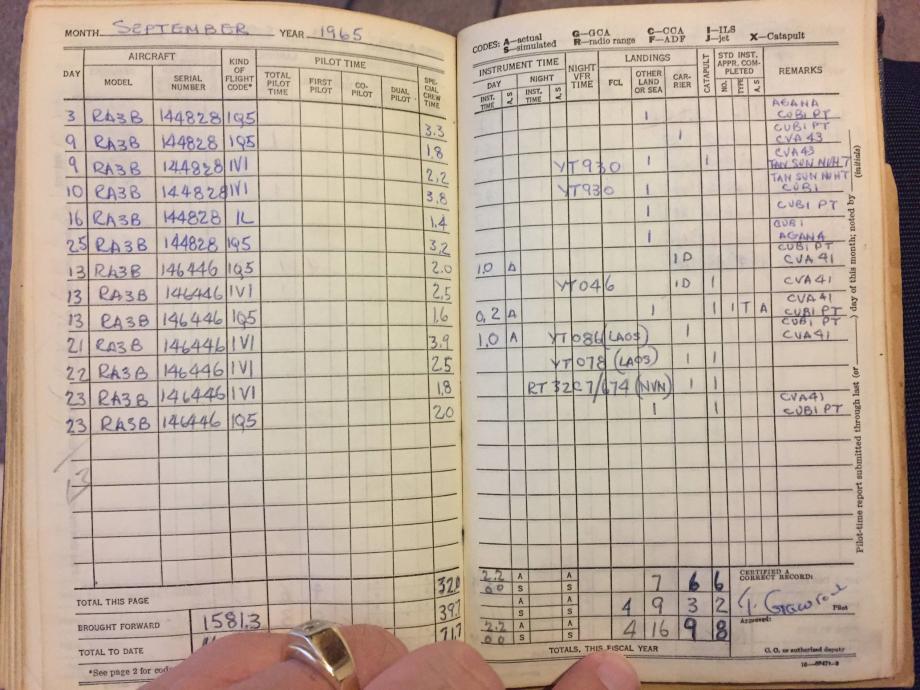 MONTH SEPTEMBER YEAR 1965
DAY
AIRCRAFT
MODEL
SERIAL NUMBER
KIND OF FLIGHT CODE*
PILOT TIME
TOTAL PILOT TIME
FIRST PILOT
CO-PILOT
DUAL PILOT
SPECIAL CREW TIME
3 RA3B 144828 1Q5 3.3
9 RA3B 144828 1Q5 1.8
9 RA3B 144828 1V1 2.2
10 RA3B 144828 1V1 3.8
16 RA3B 144828 1L 1.4
25 RA3B 144828 1Q5 3.2
13 RA3B 146446 1Q5 2.0
13 RA3B 146446 1V1 2.5
13 RA3B 146446 1Q5 1.6
21 RA3B 146446 1V1 3.9
22 RA3B 146446 1V1 2.5
23 RA3B 146446 1V1 1.8
23 RA3B 146446 1Q5 2.0
TOTAL THIS PAGE 32.0
BROUGHT FORWARD 1581.3 39.7
TOTAL TO DATE 71.7
*See page 2 for
CODES: A—actual G—GCA C—CCA I—ILS
S—simulated R—radio range F—ADF J—jet X—Catapult
INSTRUMENT TIME
DAY
NIGHT
INST. TIME
A, S
INST. TIME
A, S
NIGHT VFR TIME
LANDINGS
FCL
OTHER LAND OR SEA
CARRIER
CATAPULT
STD INST. APPR. COMPLETED
NO.
TYPE
A, S
REMARKS
1 AGANA
CUBI PT
1 CUBI PT
CVA 43
YT930 1 1 CVA 43
TAN SUN NUHT
YT930 1 TAN SUN NUHT
CUBI
1 CUBI PT
1 CUBI
AGANA
1.0 A 1D CUBI PT
CVA 41
YT046 1D 1 CVA 41
0.2 A 1 1 1 T A CVA 41
CUBI PT
1.0 A YT086 (LAOS) 1 CUBI PT
CVA 41
YT078 (LAOS) 1 1
RT 32C7/674 (NVN) 1 1
1 1 CVA 41
CUBI PT
2.2 A A 7 6 6
0.0 S S
A A 4 9 3 2
S S
2.2 A A 4 16 9 8
0.0 S S
TOTALS, THIS FISCAL YEAR
CERTIFIED A CORRECT RECORD:
Pilot
Approved:
C. O. or authorized deputy
Pilot-time report submitted through last (or ) day of this month; noted by (initials)